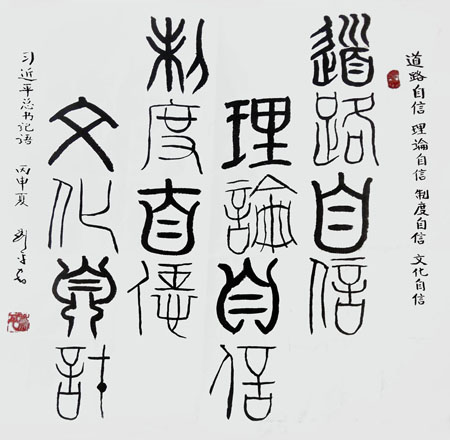 道路自信 理論自信 制度自信 文化自信
道路自信
理論自信
制度自信
文化自信
习近平总书记语 丙申夏